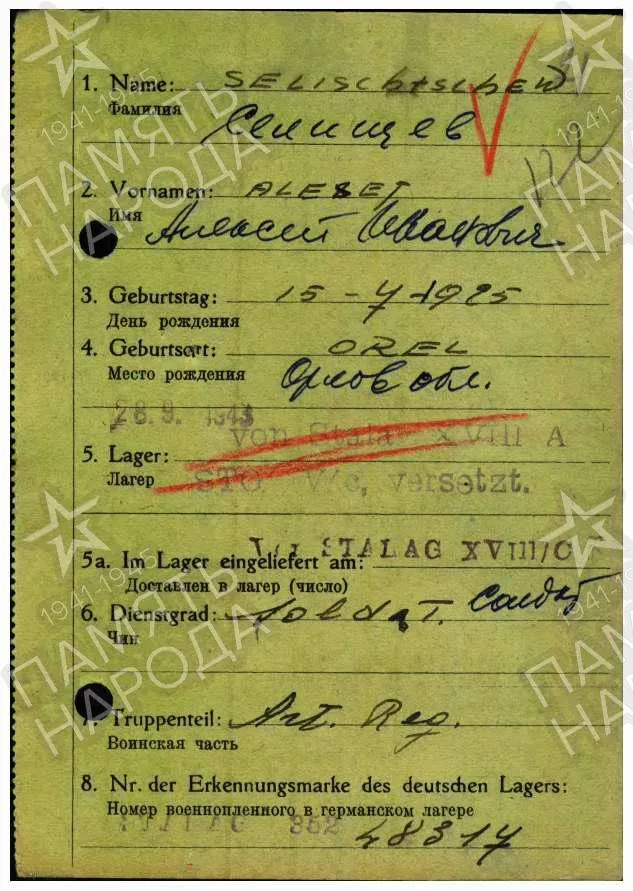 1. Name: SELISCHTSCHEW
Фамилия
Селищев
2. Vornamen: ALEKSET
Имя
Алексей Иванович
3. Geburtstag: 15-4-1925
День рождения
4. Geburtsort: OREL
Место рождения Орлов обл.
28.9.1943
von Stalag XVIII A
5. Lager:
Лагер STO versetzt.
STALAG XVIII/C
5a. Im Lager eingeliefert am:
Доставлен в лагер (число)
6. Dienstgrad: Soldat. Солдат
Чин
7. Truppenteil: Art. Reg.
Воинская часть
8. Nr. der Erkennungsmarke des deutschen Lagers:
Номер военнопленного в германском лагере
352 48317
1941-1945
ПАМЯТЬ
НАРОДА